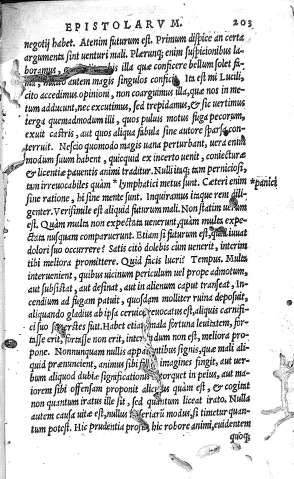 EPISTOLARVM. 203
negotij habet. Atenim futurum est. Primum dispice an certa
argumenta sint venturi mali. Plærunq; enim suspicionibus la
boramus, illa quæ conficere bellum solet fa-
ma, autem magis singulos conficit. Ita est mi Lucili,
cito accedimus opinioni, non coarguimus illa, quæ nos in me-
tum adducunt, nec excutimus, sed trepidamus, & sic vertimus
terga quemadmodum illi, quos puluis motus fuga pecorum,
exuit castris, aut quos aliqua fabula sine autore sparsa con-
terruit. Nescio quomodo magis uana perturbant, uera enim
modum suum habent, quicquid ex incerto uenit, coniecturæ
& licentiæ pauentis animi traditur. Nulli itaq; tam perniciosi,
tam irreuocabiles quàm * lymphatici metus sunt. Cæteri enim *panici
sine ratione, hi sine mente sunt. Inquiramus itaque rem dili-
genter. Verisimile est aliquid futurum mali. Non statim uerum
est. Quàm multa non expectata uenerunt, quàm multa expe-
ctata nusquam comparuerunt. Etiam si futurum est, quid iuuat
dolori suo occurrere? Satis citò dolebis cùm uenerit, interim
tibi meliora promittere. Quid facis lucri? Tempus. Multa
interuenient, quibus uicinum periculum uel prope admotum,
aut subsistat, aut desinat, aut in alienum caput transeat. In-
cendium ad fugam patuit, quosdam molliter ruina deposuit,
aliquando gladius ab ipsa ceruice reuocatus est, aliquis carnifi-
ci suo superstes fuit. Habet etiam mala fortuna leuitatem, for-
tasse erit, fortasse non erit, interdum non est, meliora pro-
pone. Nonnunquam nullis apparentibus signis, quæ mali ali-
quid præuuncient, animus sibi falsas imagines fingit, aut uer-
bum aliquod dubiæ significationis detorquet in peius, aut ma-
iorem sibi offensam proponit alicuius quàm est, & cogitat
non quantum iratus ille sit, sed quantum liceat irato. Nulla
autem causa uitæ est, nullus miseriarum modus, si timetur quan-
tum potest. Hic prudentia prosit, hic robore animi, euidentem
quoq;